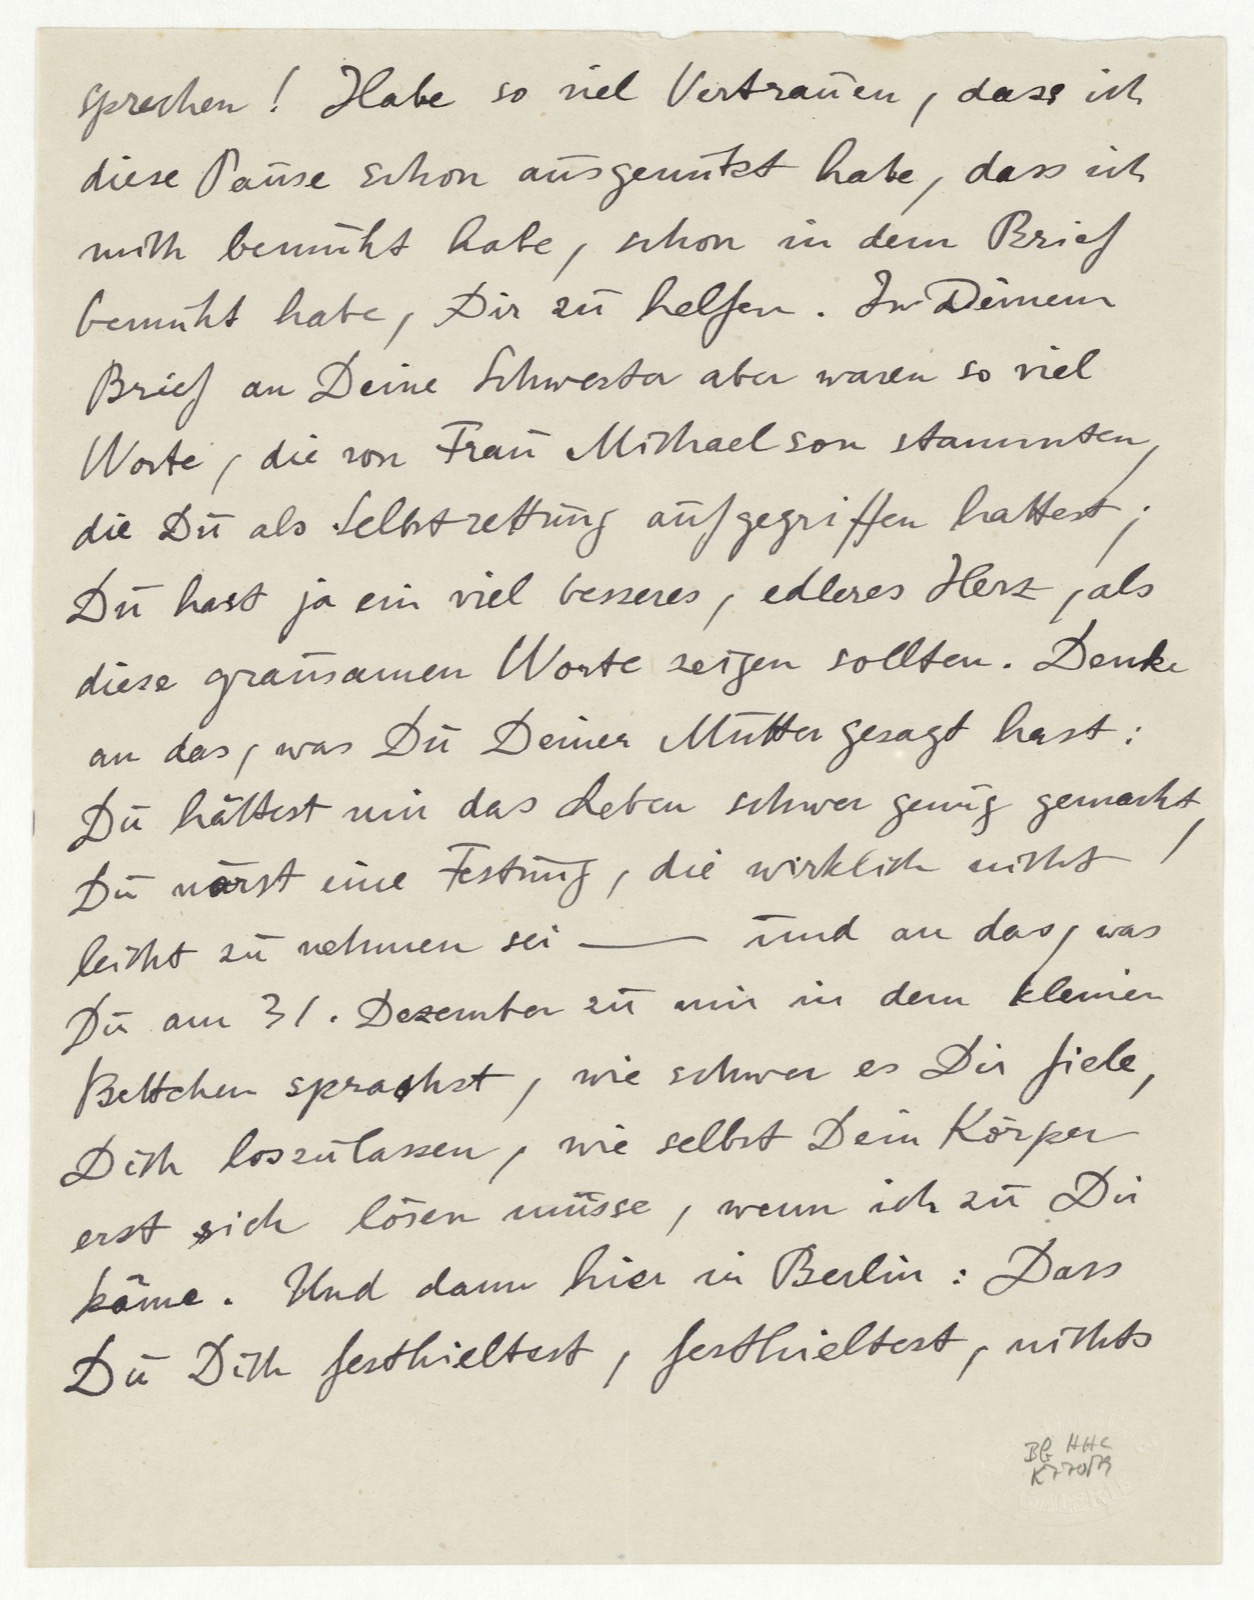 sprechen! Habe so viel Vertrauen, dass ich
diese Pause schon ausgenützt habe, dass ich
mich bemüht habe, schon in dem Brief
bemüht habe, Dir zu helfen. In Deinem
Brief an Deine Schwester aber waren so viel
Worte, die von Frau Michaelson stammten,
die Du als Selbstrettung aufgegriffen hattest;
Du hast ja ein viel besseres, edleres Herz, als
diese grausamen Worte zeigen sollten. Denke
an das, was Du Deiner Mutter gesagt hast:
Du hättest mir das Leben schwer genug gemacht,
Du wärst eine Festung, die wirklich nicht
leicht zu nehmen sei — und an das, was
Du am 31. Dezember zu mir in dem kleinen
Bettchen sprachst, wie schwer es Dir fiele,
Dich loszulassen, wie selbst Dein Körper
erst sich lösen müsse, wenn ich zu Dir
käme. Und dann hier in Berlin: Dass
Du Dich festhieltest, festhieltest, nichts
BG HHC
K 770/79